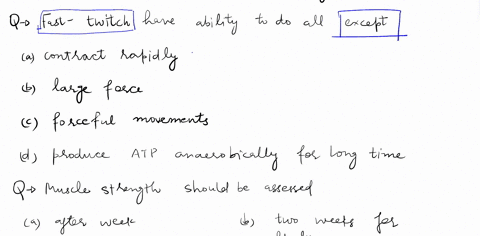 Q→ Fast-twitch have ability to do all except
(a) contract rapidly
(b) large force
(c) forceful movements
(d) produce ATP anaerobically for long time
Q→ Muscle strength should be assessed
(a) after week (b) two weeks for